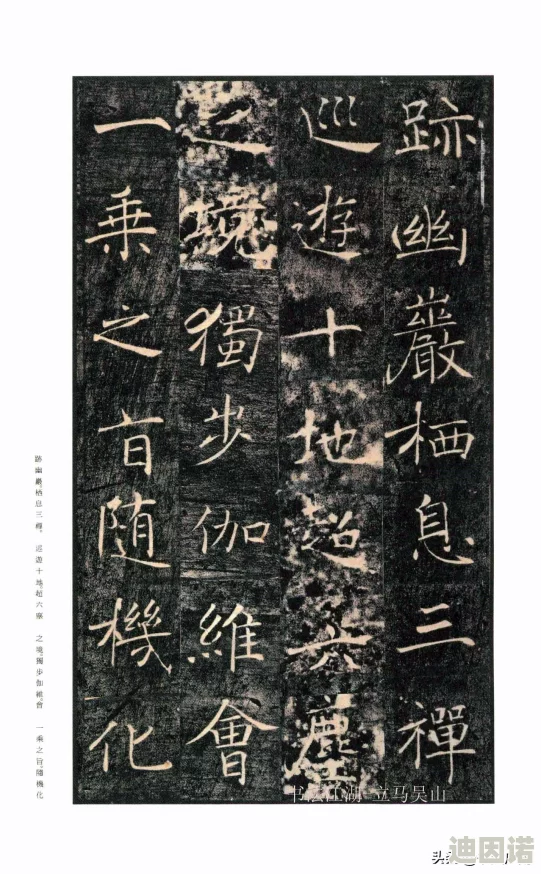 跡幽巖栖息三禪
巡遊十地超六塵
之境獨步伽維會
一乗之旨随機化
跡幽巖。栖息三禪。巡遊十地。超六塵之境。獨步伽維。會一乘之旨。隨機化
书法江湖 立马吴山
迪因诺